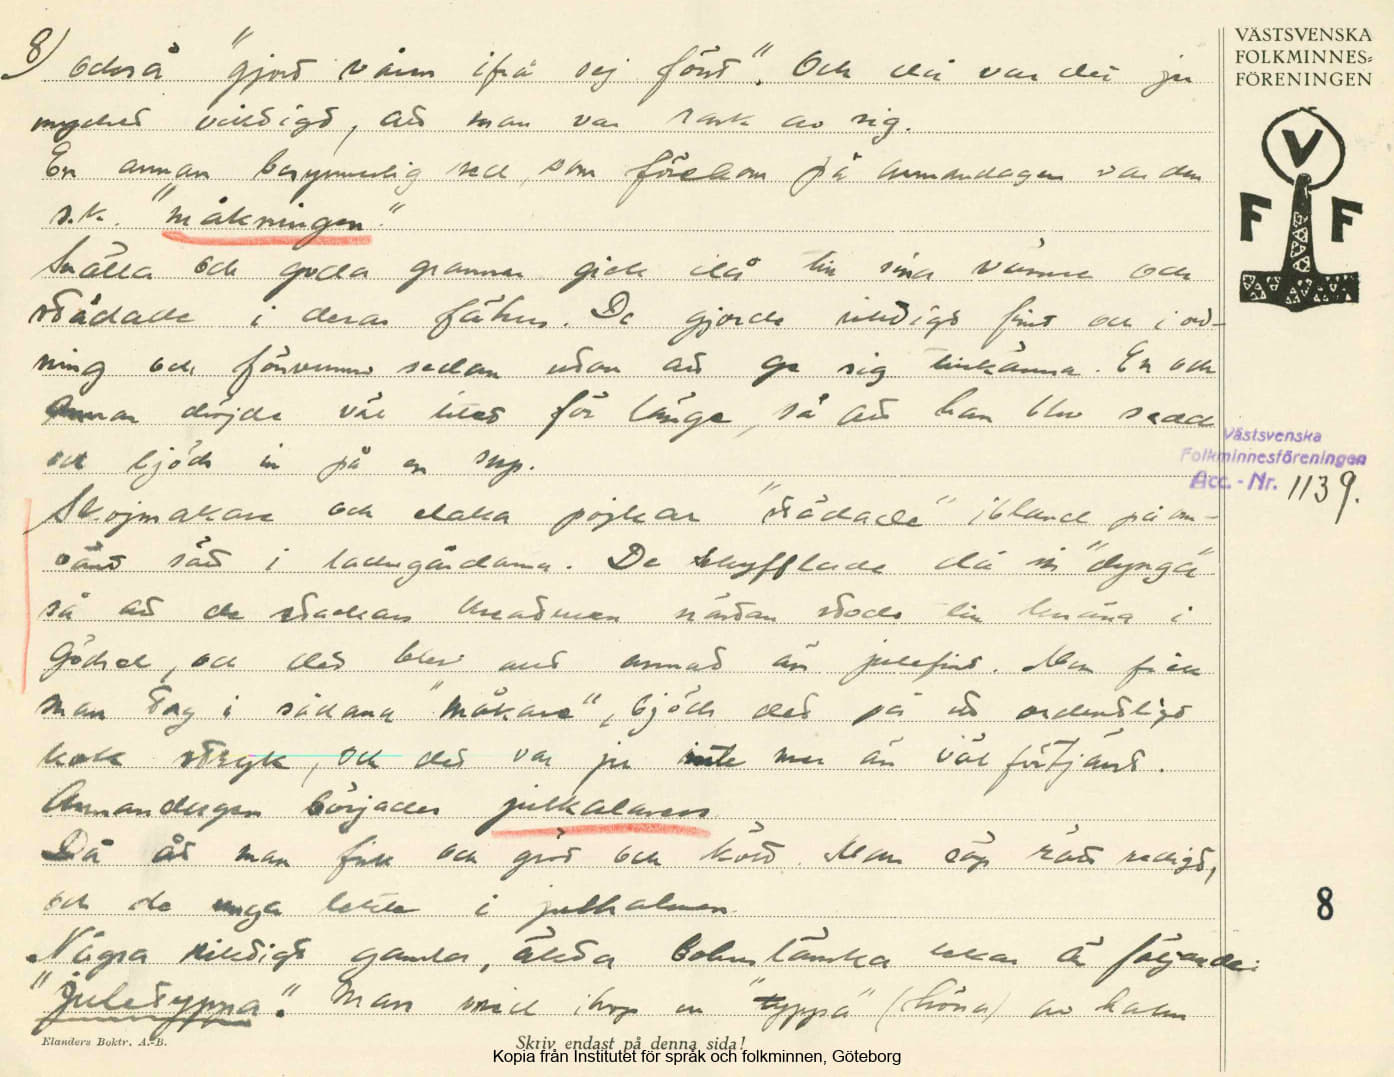 8) också "gjort våren ifrå sej först". Och då var det ju
mycket viktigt, att man var rask av sig.
En annan besynnerlig sed, som förekom på annandagen var den
s.k. "måkningen".
Snälla och goda grannar gick då till sina vänner och
städade i deras fähus. De gjorde riktigt fint och i ord-
ning och försvunno sedan utan att ge sig tillkänna. En och
annan dröjde väl litet för länge, så att han blev sedd
och bjöds in på en sup.
Skojmakare och elaka pojkar "städade" ibland på om-
vänt sätt i ladugårdarna. De skyfflade då in "dynga"
så att de stackars kreaturen nästan stodo till knäna i
gödsel, och det blev allt annat än julefint. Men fick
man tag i sådana "måkare", bjöds det på ett ordentligt
kok stryk, och det var ju inte mer än väl förtjänt.
Annandagen började julkalasen.
Då åt man fisk och gröt och kött. Man söp rätt redigt,
och de unga lekte i julhalmen.
Några riktigt gamla, äkta bohuslänska lekar är följande:
"Juletyppa". Man vred ihop en "typpa" (höna) av halm
VÄSTSVENSKA
FOLKMINNES-
FÖRENINGEN
V
F F
Västsvenska
Folkminnesföreningen
Acc. - Nr. 1139.
8
Elanders Boktr. A.-B.
Skriv endast på denna sida!
Kopia från Institutet för språk och folkminnen, Göteborg